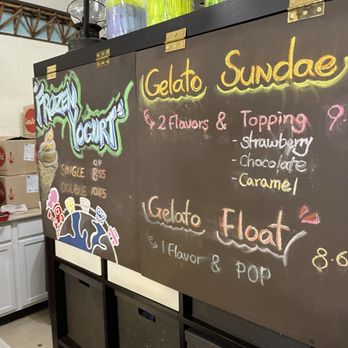 FROZEN
YOGURT
CUP
SINGLE 8.55
DOUBLE 10.85
Gelato Sundae
2 Flavors & Topping 9
- Strawberry
- Chocolate
- Caramel
Gelato Float
1 Flavor & POP 8.6